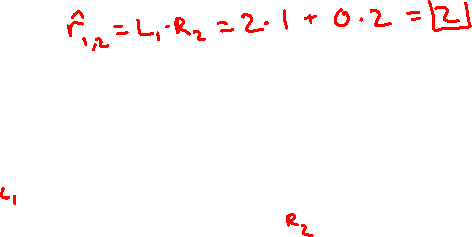 r̂₁,₂ = L₁·R₂ = 2·1 + 0·2 = 2
L₁
R₂